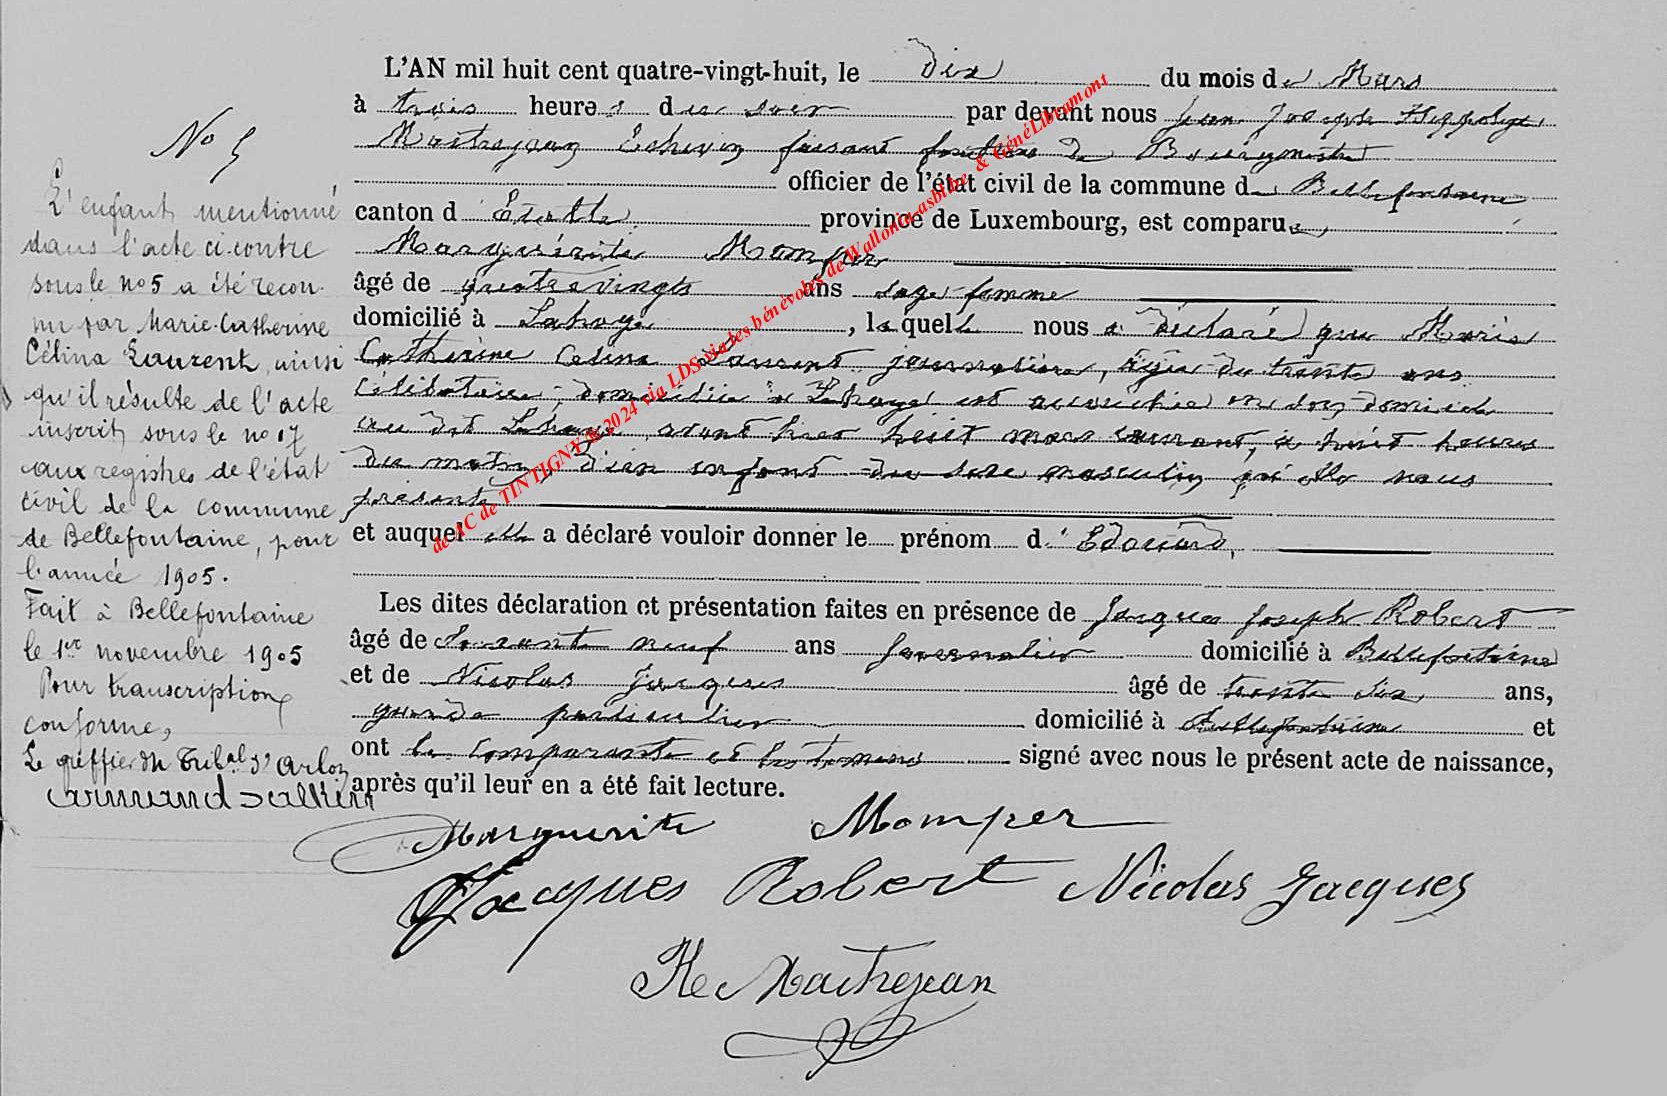 No 5
L'enfant mentionné
dans l'acte ci-contre
sous le no 5 a été recon-
nu par Marie-Catherine
Célina Laurent, ainsi
qu'il résulte de l'acte
inscrit sous le no 17
aux registres de l'état
civil de la commune
de Bellefontaine, pour
l'année 1905.
Fait à Bellefontaine
le 1er novembre 1905
Pour transcription
conforme,
Le greffier du Tribal d'Arlon
L'AN mil huit cent quatre-vingt-huit, le dix du mois de Mars
à trois heures du soir par devant nous Jean Joseph Hippolyte
Maitrejean Echevin faisant fonctions de Bourgmestre
officier de l'état civil de la commune de Bellefontaine
canton d'Etalle province de Luxembourg, est comparue,
Marguerite Momper
âgé de quatre vingts ans sage-femme
domicilié à Lahage, laquelle nous a déclaré que Marie
Catherine Celina Laurent journalière, âgée de trente ans
célibataire, domiciliée à Lahage est accouchée en son domicile
au dit Lahage, avant hier huit mars courant, à huit heures
du matin, d'un enfant du sexe masculin qu'elle nous
présente
et auquel elle a déclaré vouloir donner le prénom d'Edouard,
Les dites déclaration et présentation faites en présence de Jacques Joseph Robert
âgé de soixante neuf ans journalier domicilié à Bellefontaine
et de Nicolas Jacques âgé de trente six ans,
garde particulier domicilié à Bellefontaine et
ont la comparante et les témoins signé avec nous le présent acte de naissance,
après qu'il leur en a été fait lecture.
Marguerite Momper
Jacques Robert Nicolas Jacques
He Maitrejean
de AC de TINTIGNY & 2024 via LDS via les bénévoles de Wallonia asbl & GénéLibramont